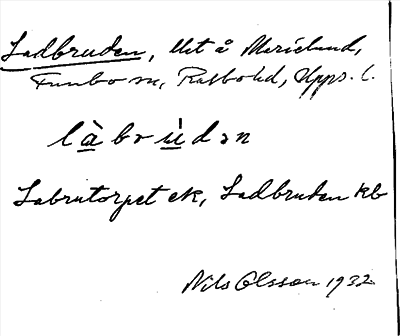 Ladbruden, lht å Marielund,
Funbo sn, Rasbo hd, Upps. l.
l à b r ù d ə n
Labrutorpet ek, Ladbruden kb
Nils Olsson 1932